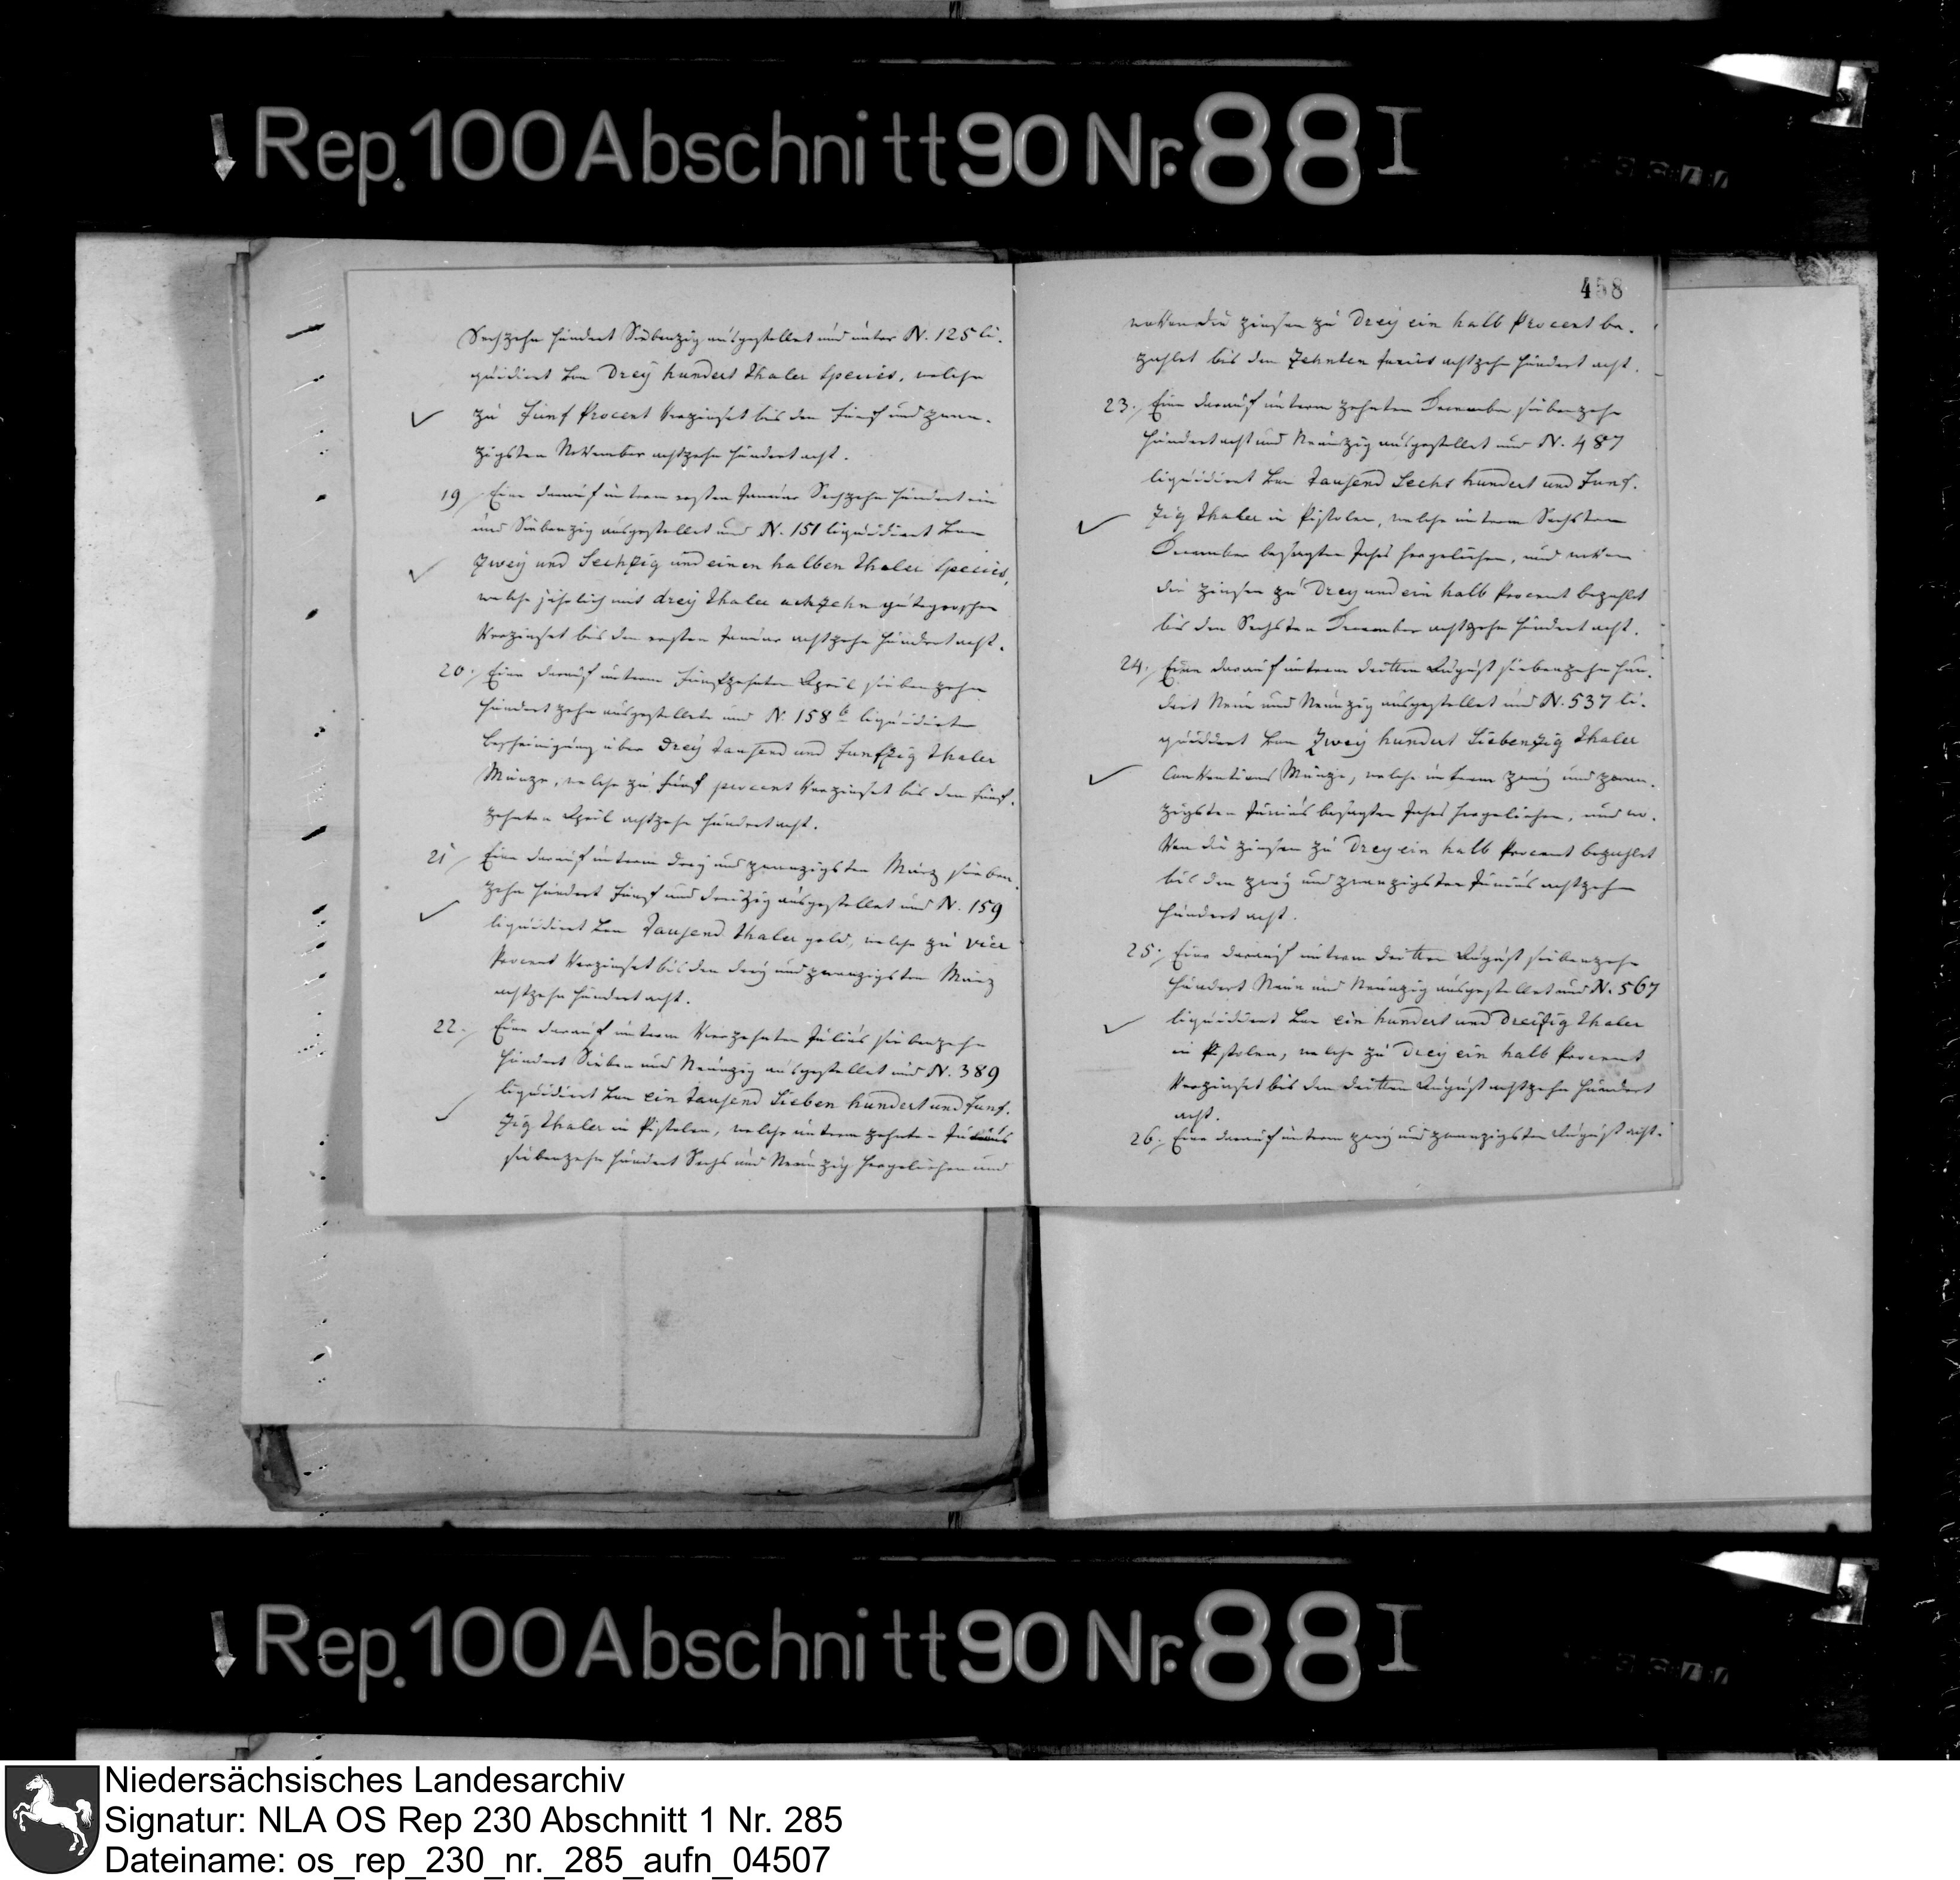 Rep. 100 Abschnitt 90 Nr. 88 I
Sechzehn hundert Siebenzig ausgestellet und unter N. 125 li-
quidirt von Drey hundert Thaler Species, welche
zu Fünf Procent verzinset bis den Fünf und zwan-
zigsten November achtzehn hundert acht.
19 Eine darauf unterm ersten Januar Sechzehn hundert ein
und Siebenzig ausgestellet und N. 151 liquidirt von
Zwey und Sechzig und einen halben Thaler Species,
welche jährlich mit drey Thaler achtzehn gutegroschen
verzinset bis den ersten Januar achtzehn hundert acht.
20. Eine darauf unterm Funfzehnten April siebenzehn
hundert zehn ausgestellete und N. 158 b liquidirte
Bescheinigung über Drey tausend und Funfzig Thaler
Münze, welche zu Fünf procent verzinset bis den funf-
zehnten April achtzehn hundert acht.
21 Eine darauf unterm drey und zwanzigsten März sieben-
zehn hundert Fünf und dreißig ausgestellet und N. 159
liquidirt von Tausend Thaler gold, welche zu vier
Procent verzinset bis den drey und zwanzigsten März
achtzehn hundert acht.
22. Eine darauf unterm Vierzehnten Julius siebenzehn
hundert Sieben und Neunzig ausgestellet und N. 389
liquidirt von ein tausend Sieben hundert und Funf-
zig Thaler in Pistolen, welche unterm zehnten
siebenzehn hundert Sechs und Neunzig hergeliehen und
458
wovon die Zinsen zu Drey ein halb Procent be-
zahlet bis den Zehnten Junius achtzehn hundert acht.
23. Eine darauf unterm zehnten December siebenzehn
hundert acht und Neunzig ausgestellet und N. 487
liquidirt von Tausend Sechs hundert und Funf-
zig Thaler in Pistolen, welche unterm Sechsten
December besagten Jahrs hergeliehen, und wovon
die Zinsen zu Drey und ein halb Procent bezahlet
bis den Sechsten December achtzehn hundert acht.
24. Eine darauf unterm dritten August siebenzehn hun-
dert Neun und Neunzig ausgestellet und N. 537 li-
quidirt von Zwey hundert Siebenzig Thaler
Conventions Münze, welche unterm zwey und zwan-
zigsten Junius besagten Jahrs hergeliehen, und wo-
von die Zinsen zu Drey ein halb Procent bezahlet
bis den zwey und zwanzigsten Junius achtzehn
hundert acht.
25. Eine darauf unterm dritten August siebenzehn
hundert Neun und Neunzig ausgestellet und N. 567
liquidirt von ein hundert und Dreißig Thaler
in Pistolen, welche zu Drey ein halb Procent
verzinset bis den dritten August achtzehn hundert
acht.
26. Eine darauf unterm zwey und zwanzigsten August acht-
Rep. 100 Abschnitt 90 Nr. 88 I
Niedersächsisches Landesarchiv
Signatur: NLA OS Rep 230 Abschnitt 1 Nr. 285
Dateiname: os_rep_230_nr._285_aufn_04507